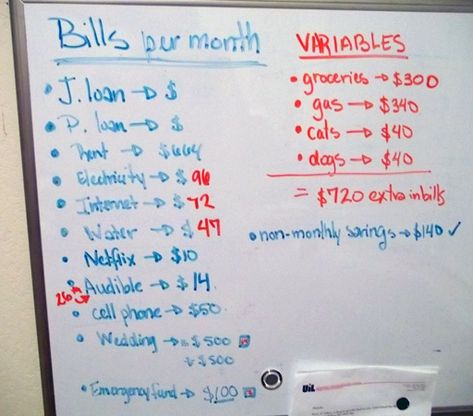 Bills per month
• J. loan → $
• P. loan → $
• Rent → $664
• Electricity → $96
• Internet → $72
• Water → $47
• Netflix → $10
• Audible → $14
25th
• cell phone → $50
• Wedding → $500
$500
• Emergency fund → $100
VARIABLES
• groceries → $300
• gas → $340
• cats → $40
• dogs → $40
= $720 extra in bills
• non-monthly savings → $140 ✓
UiL